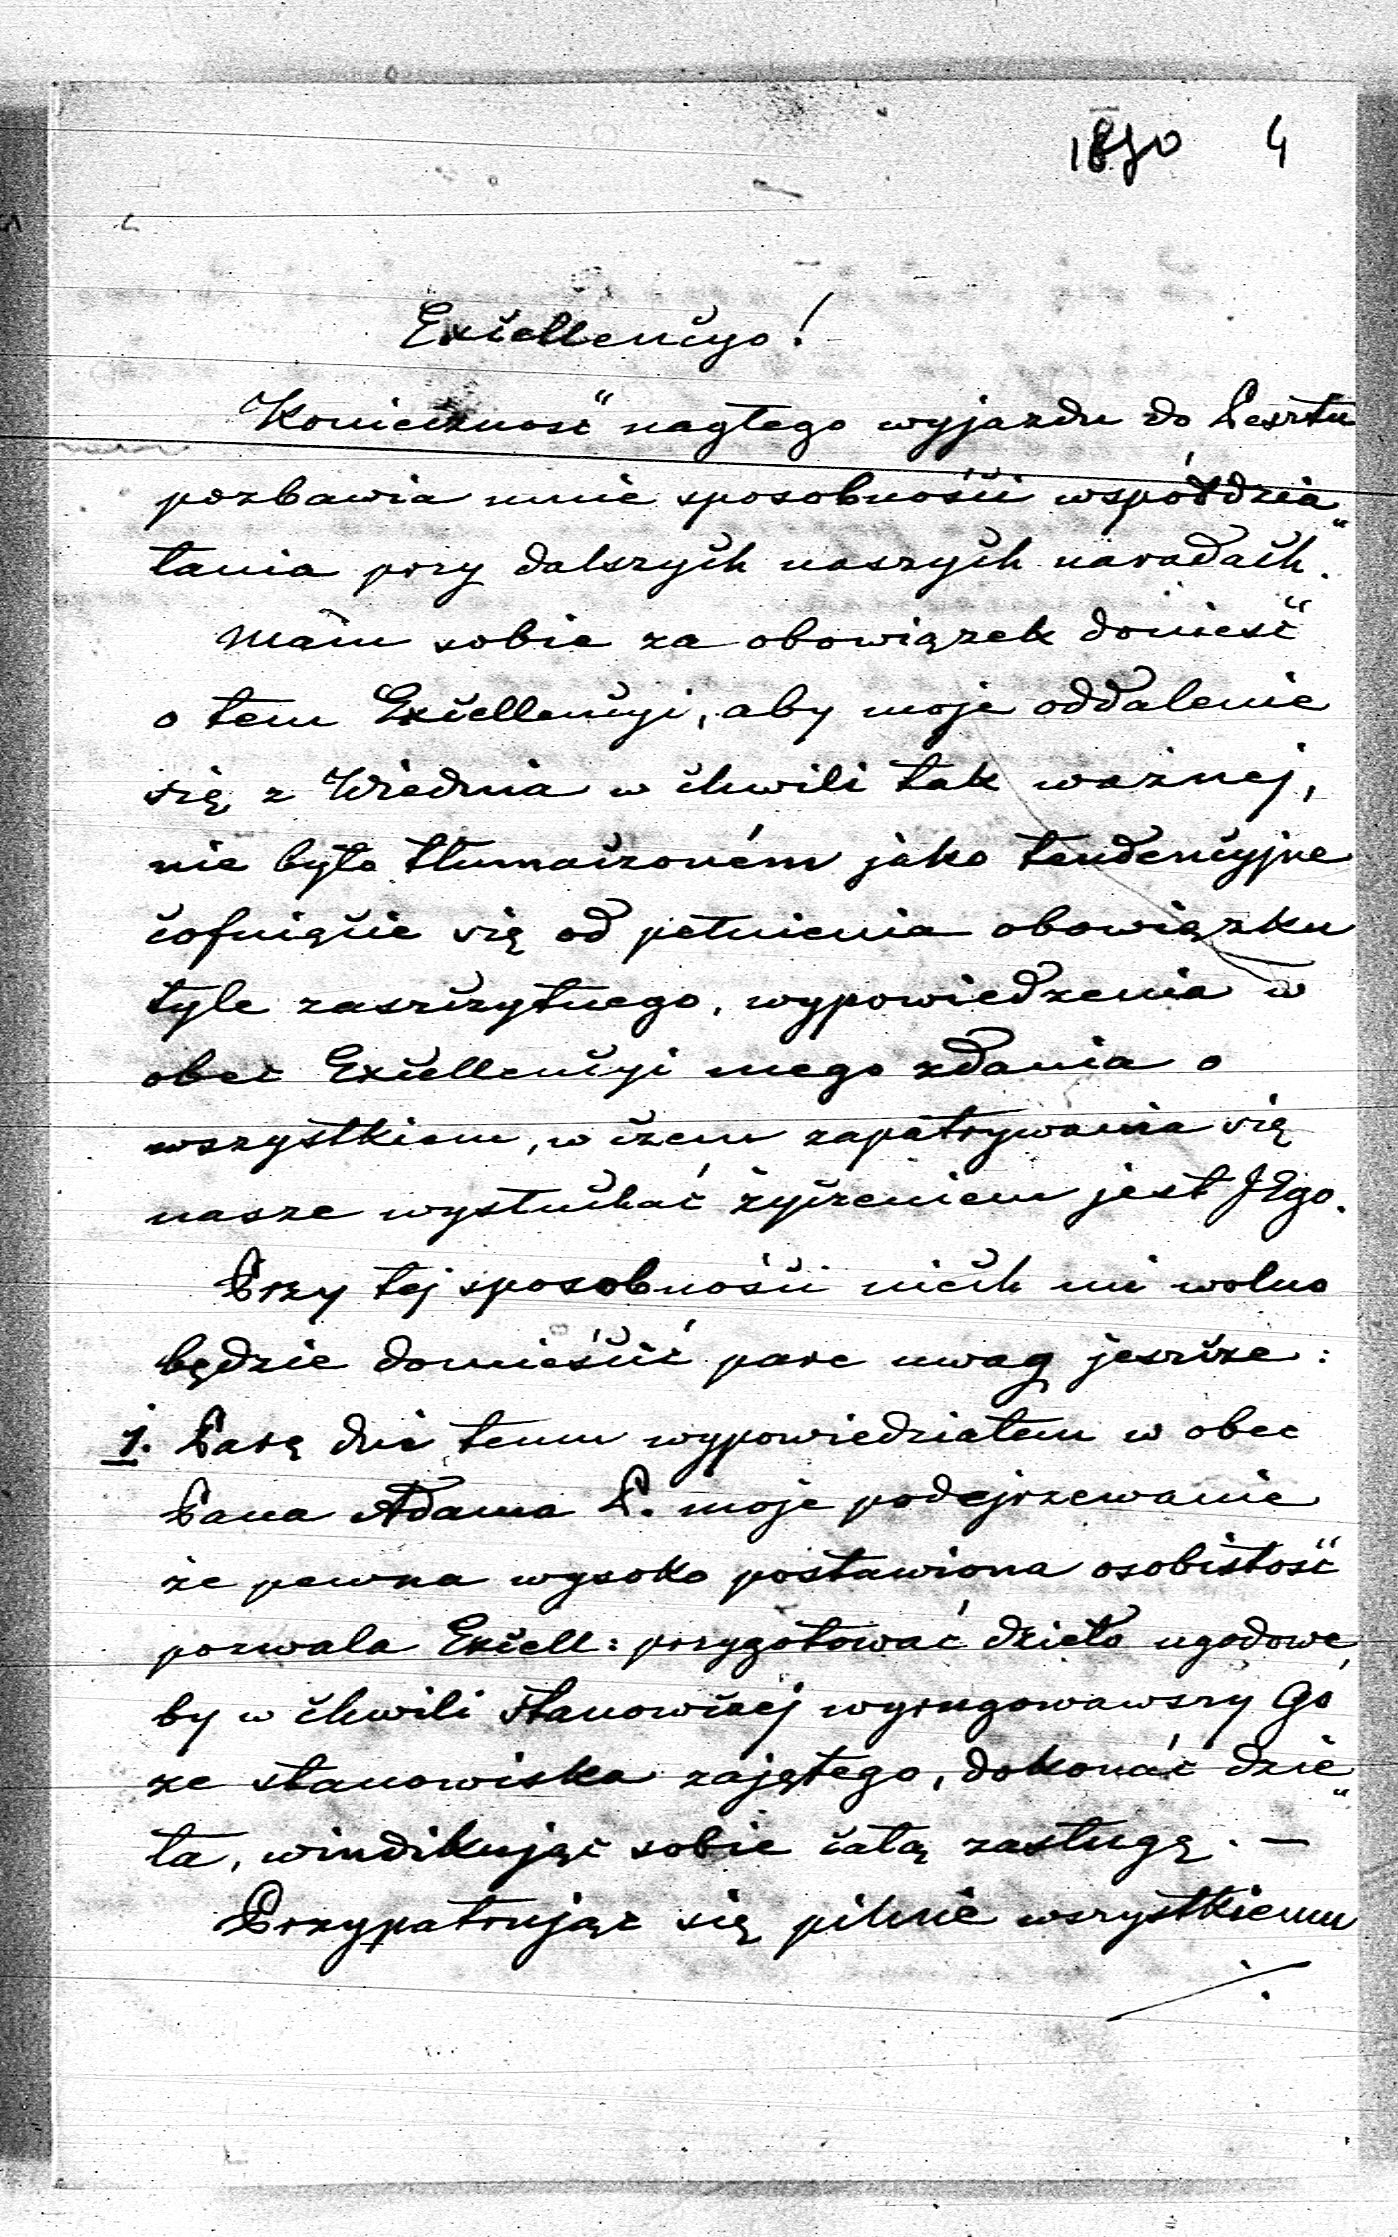 1870 4
Excellencyo!
Konieczność nagłego wyjazdu do Pesztu
pozbawia mnie sposobności współdzia„
łania przy dalszych naszych naradach.
Mam sobie za obowiązek donieść
o tem Excellencyi, aby moje oddalenie
się z Wiednia w chwili tak ważnej,
nie było tłumaczoném jako tendencyjne
cofnięcie się od pełnienia obowiązku
tyle zaszczytnego, wypowiedzenia w
obec Excellencyi mego zdania o
wszystkiem, w czem zapatrywania się
nasze wysłuchać życzeniem jest JEgo.
Przy tej sposobności niech mi wolno
będzie domieścić parę uwag jeszcze:
1. Parę dni temu wypowiedziałem w obec
Pana Adama P. moje podejrzewanie
że pewna wysoko postawiona osobistość
pozwala Excell: przygotować dzieło ugodowe
by w chwili stanowczej wyrugowawszy Go
ze stanowiska zajętego, dokonać dzie„
ła, windikując sobie całą zasługę. —
Przypatrując się pilnie wszystkiemu
./.